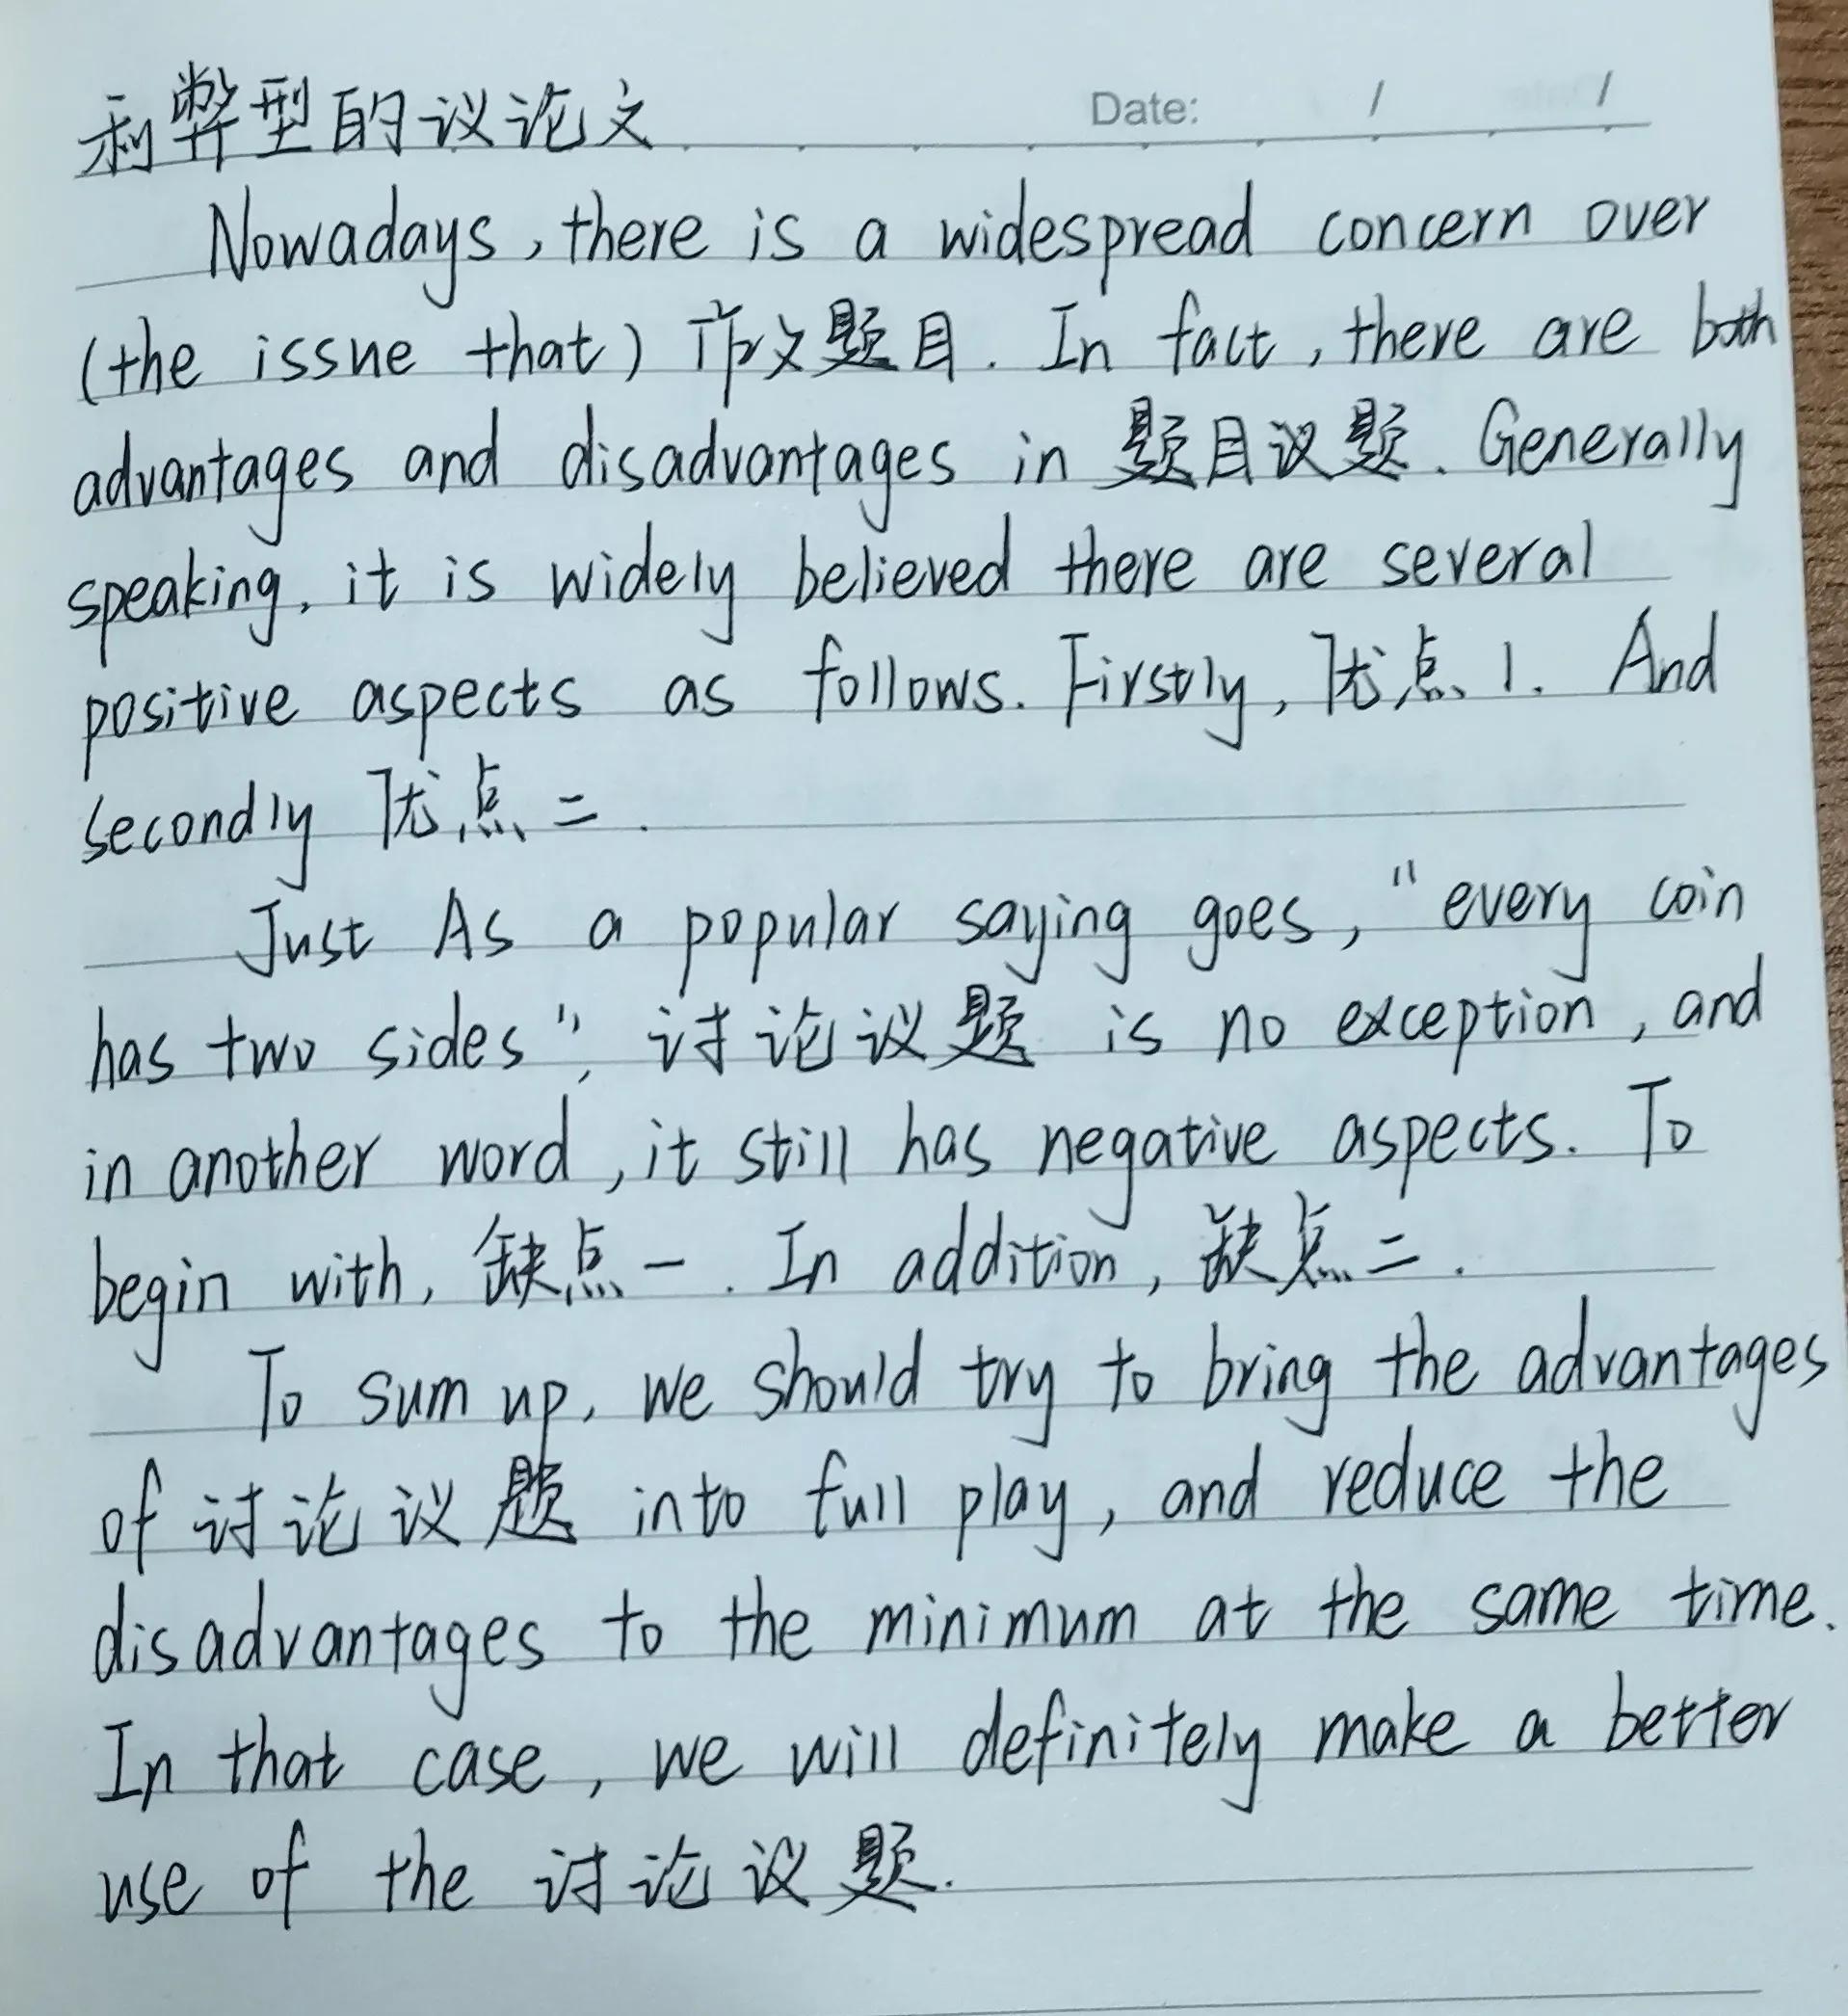 利弊型的议论文 Date: / /
Nowadays, there is a widespread concern over
(the issue that) 作文题目. In fact, there are both
advantages and disadvantages in 题目议题. Generally
speaking, it is widely believed there are several
positive aspects as follows. Firstly, 优点1. And
secondly 优点二.
Just As a popular saying goes, "every coin
has two sides", 讨论议题 is no exception, and
in another word, it still has negative aspects. To
begin with, 缺点一. In addition, 缺点二.
To sum up, we should try to bring the advantages
of 讨论议题 into full play, and reduce the
disadvantages to the minimum at the same time.
In that case, we will definitely make a better
use of the 讨论议题.